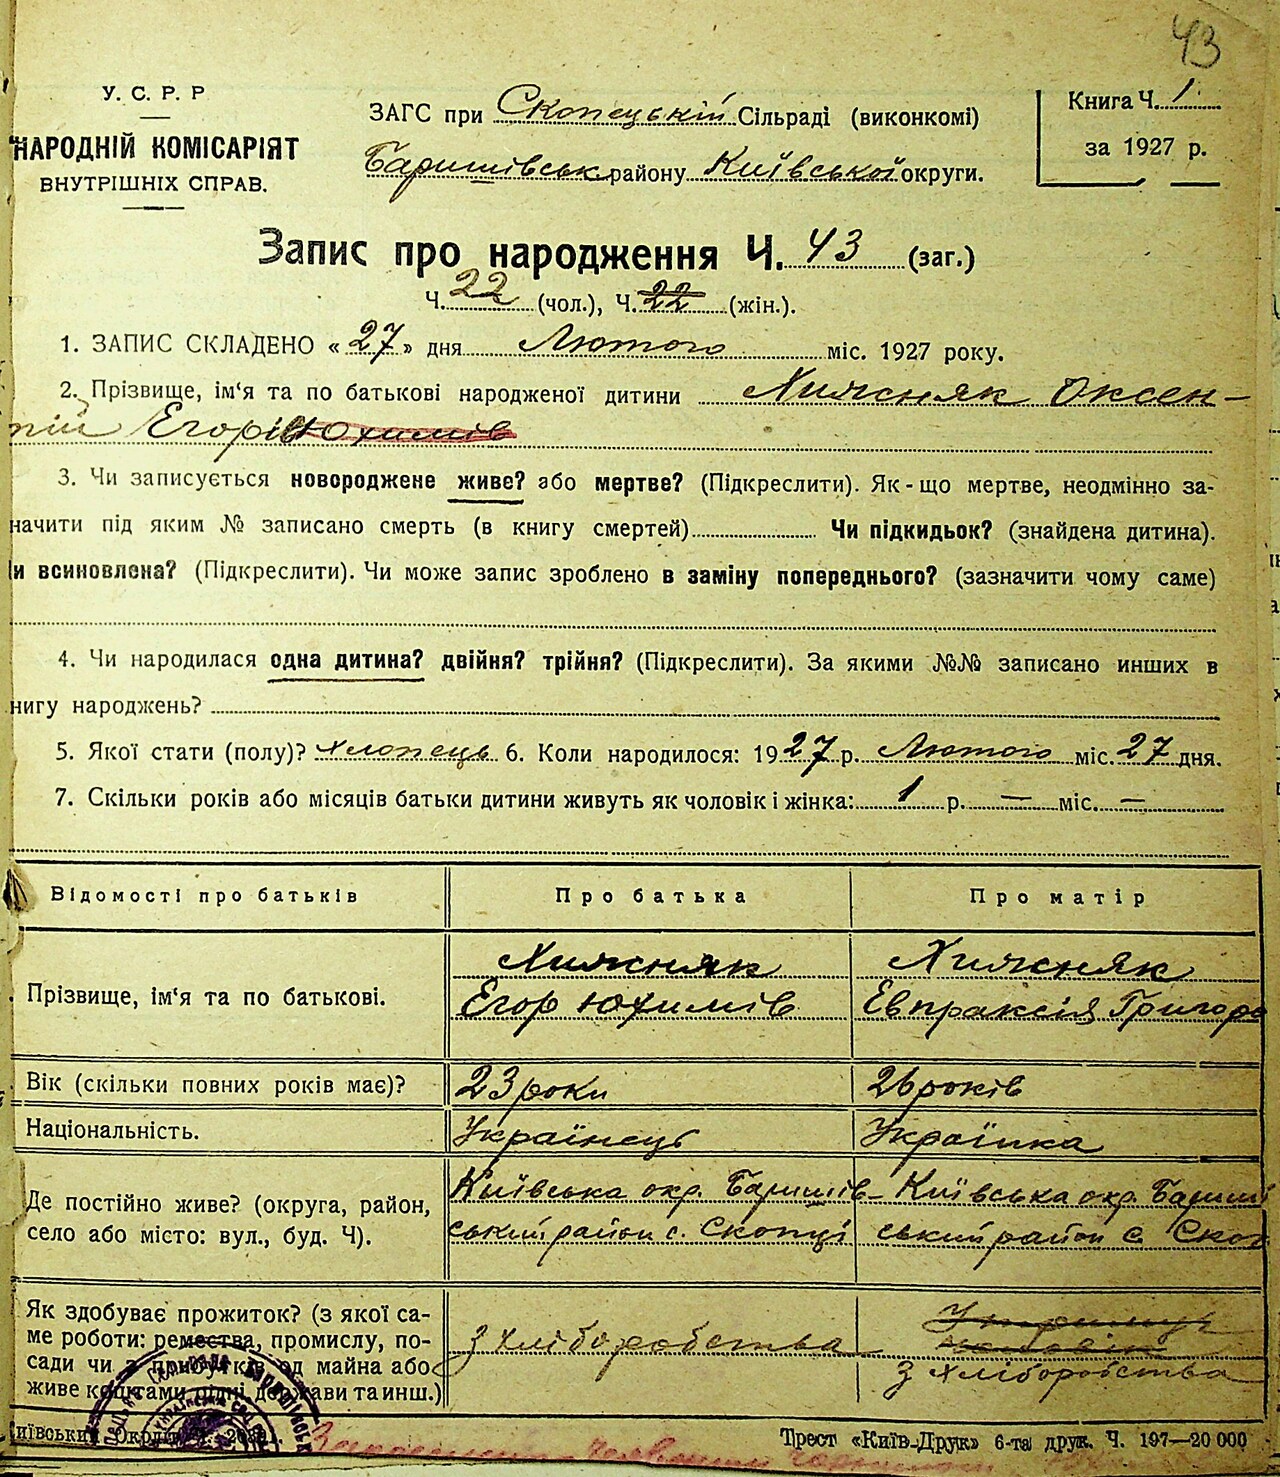 43
У. С. Р. Р
НАРОДНІЙ КОМІСАРІЯТ
ВНУТРІШНІХ СПРАВ.
ЗАГС при Скопецькій Сільраді (виконкомі)
Баришівськ району Київської округи.
Книга Ч. 1
за 1927 р.
Запис про народження Ч. 43 (заг.)
Ч. 22 (чол.), Ч. 22 (жін.).
1. ЗАПИС СКЛАДЕНО «27» дня Лютого міс. 1927 року.
2. Прізвище, ім‘я та по батькові народженої дитини Хижсняк Оксен-
тій Егорів Юхимів
3. Чи записується новороджене живе? або мертве? (Підкреслити). Як-що мертве, неодмінно за-
начити під яким № записано смерть (в книгу смертей) Чи підкидьок? (знайдена дитина).
и всиновлена? (Підкреслити). Чи може запис зроблено в заміну попереднього? (зазначити чому саме)
4. Чи народилася одна дитина? двійня? трійня? (Підкреслити). За якими №№ записано инших в
нигу народжень?
5. Якої стати (полу)? Хлопець 6. Коли народилося: 1927 р. Лютого міс. 27 дня.
7. Скільки років або місяців батьки дитини живуть як чоловік і жінка: 1 р. — міс. —
Відомості про батьків Про батька Про матір
Прізвище, ім‘я та по батькові.
Хижсняк Хижсняк
Егор Юхимів Евпраксія Григоро
Вік (скільки повних років має)? 23 роки 26 років
Національність. Українець Українка
Де постійно живе? (округа, район,
село або місто: вул., буд. Ч).
Київська окр. Баришів- Київська окр. Бариші
ський район с. Скопці ський район с. Скоп
Як здобуває прожиток? (з якої са-
ме роботи: ремества, промислу, по-
сади чи з прибутків од майна або
живе коштами рідні держави та инш.)
З хліборобства З хліборобства
иївський Окрліт
Трест «Київ-Друк» 6-та друк. Ч. 197—20 000